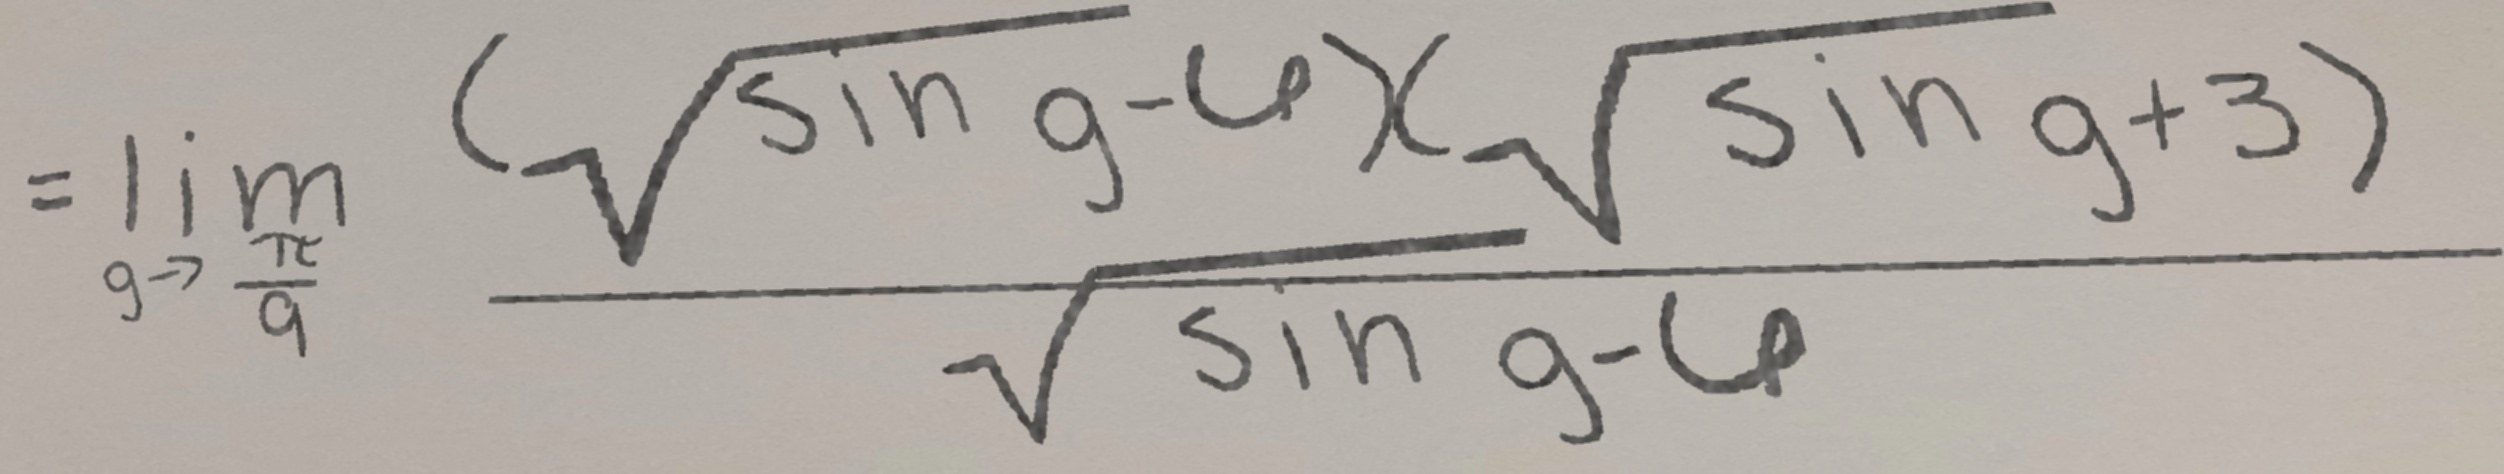 = lim_{g→π/9} (√(sin g) - 6)(√(sin g) + 3) / (√(sin g) - 6)